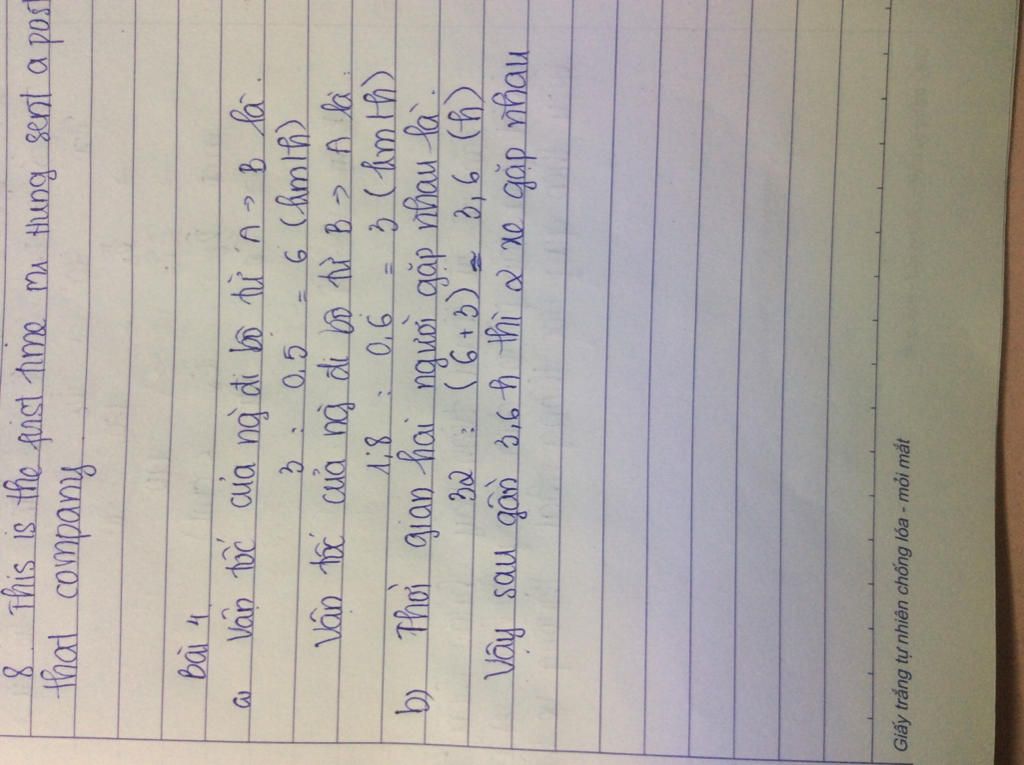 8. This is the first time mr Hung sent a post
that company
Bài 4
a, Vận tốc của ng đi bộ từ A → B là.
3 : 0,5 = 6 (km/h)
Vận tốc của ng đi bộ từ B → A là.
1,8 : 0,6 = 3 (km/h)
b) Thời gian hai người gặp nhau là.
32 : (6+3) ≈ 3,6 (h)
Vậy sau gần 3,6 h thì 2 xe gặp nhau
Giấy trắng tự nhiên chống lóa - mỏi mắt